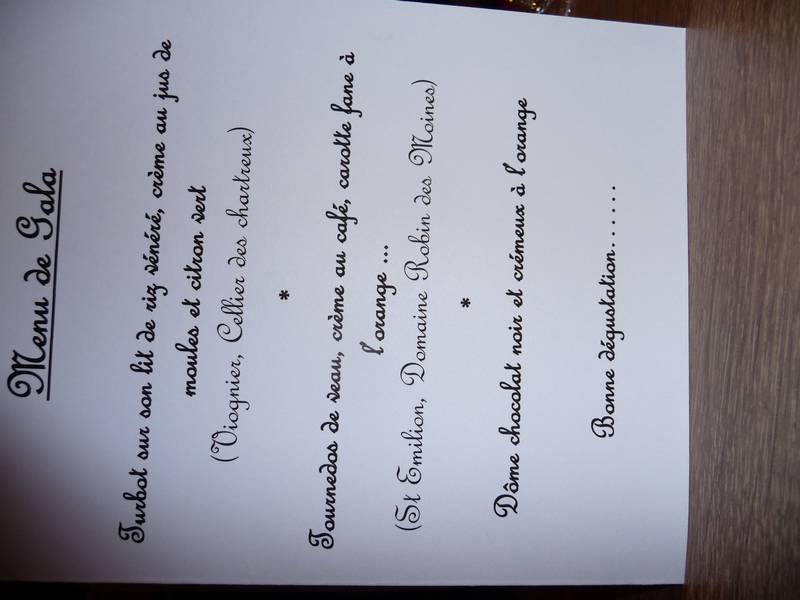 Menu de Gala
Turbot sur son lit de riz vénéré, crème au jus de
moules et citron vert
(Viognier, Cellier des chartreux)
*
Tournedos de veau, crème au café, carotte fane à
l'orange ...
(St Emilion, Domaine Robin des Moines)
*
Dôme chocolat noir et crémeux à l'orange
Bonne dégustation.......